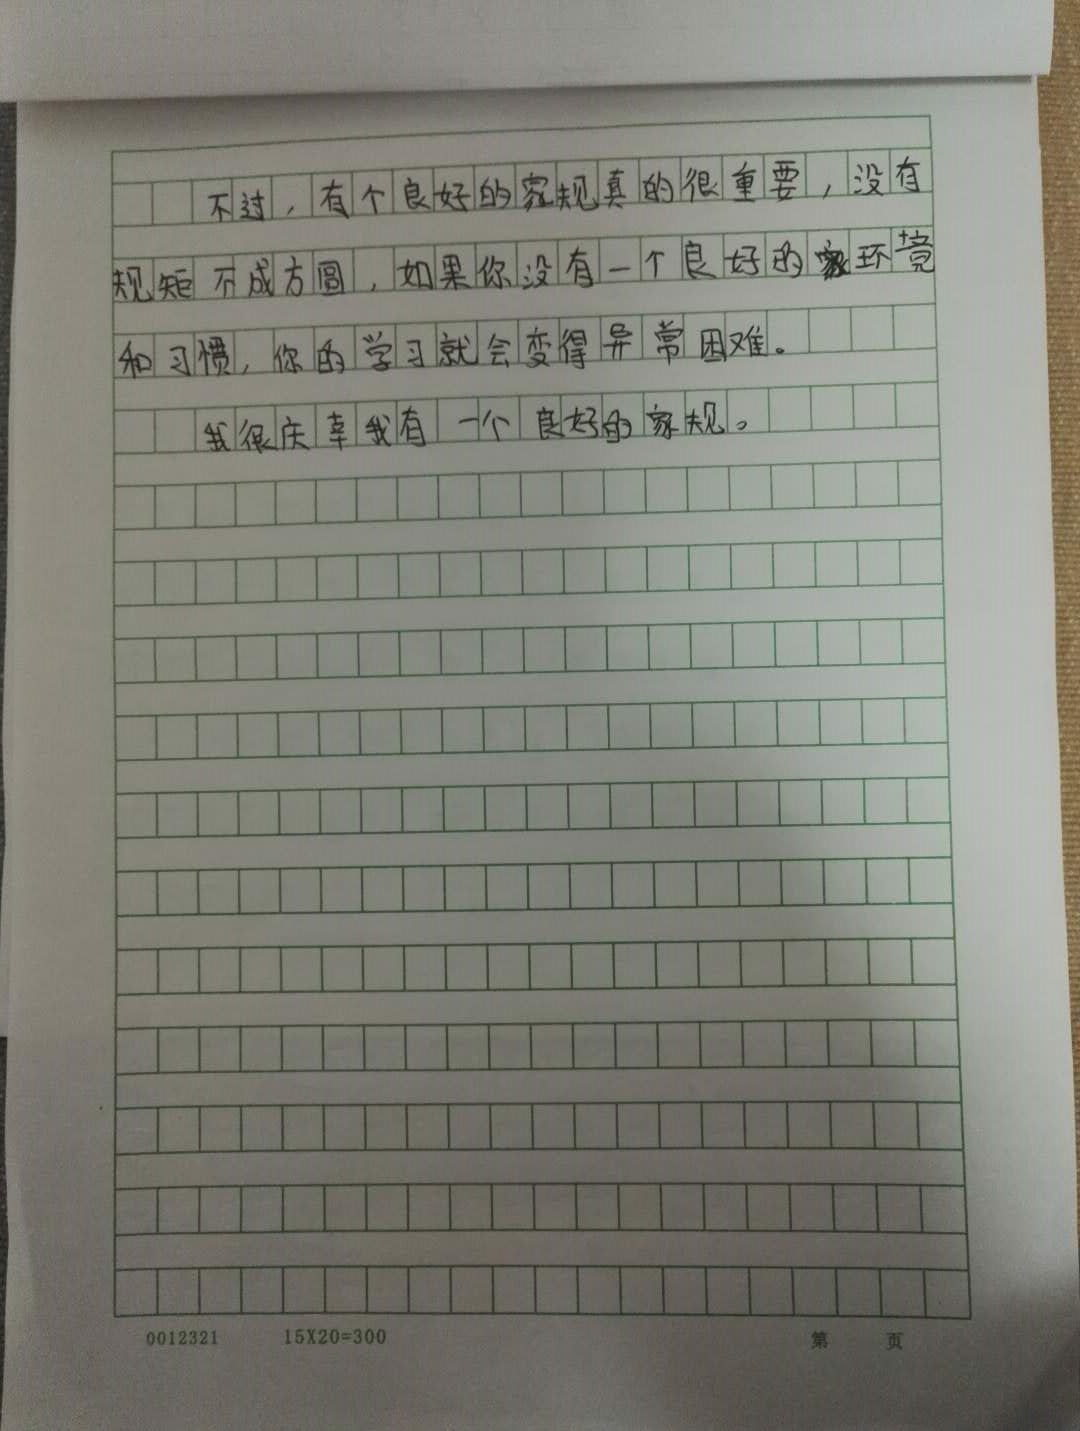 不过，有个良好的家规真的很重要，没有
规矩不成方圆，如果你没有一个良好的家环境
和习惯，你的学习就会变得异常困难。
我很庆幸我有一个良好的家规。
0012321 15X20=300 第 页